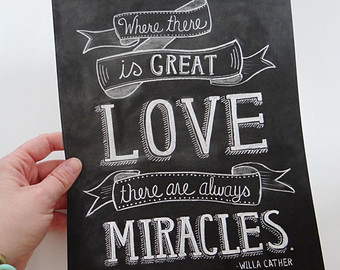 Where there
is GREAT
LOVE
there are always
MIRACLES.
-WILLA CATHER